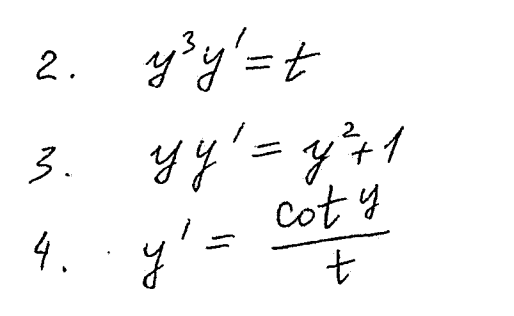 2. y³y' = t
3. yy' = y² + 1
4. y' = cot y / t